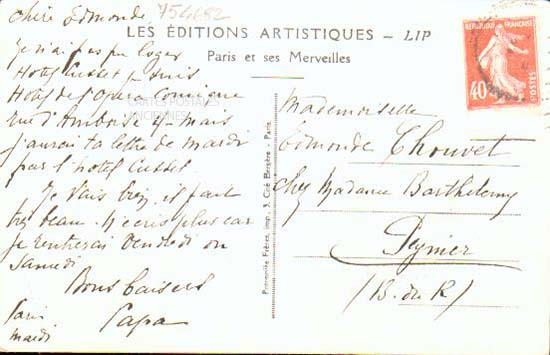 chère Edmonde 754682
LES ÉDITIONS ARTISTIQUES – LIP
Paris et ses Merveilles
RÉPUBLIQUE FRANÇAISE
40c
POSTES
Je n'ai pas pu loger
Hotel Cusset je suis
Hotel de l'Opera Comique
rue d'Amboise 4 – Mais
j'aurai ta lettre de mardi
par l'hotel Cusset
Je vais bien, il fait
très beau. N'écris plus car
je rentrerai Vendredi ou
Samedi
Bons baisers
Papa
Paris
mardi
CARTES POSTALES
ANCIENNES
Prunevieille Frères, imp., 3, Cité Bergère - Paris
Mademoiselle
Edmonde Chouvet
chez Madame Barthelemy
Peynier
(B. du R)